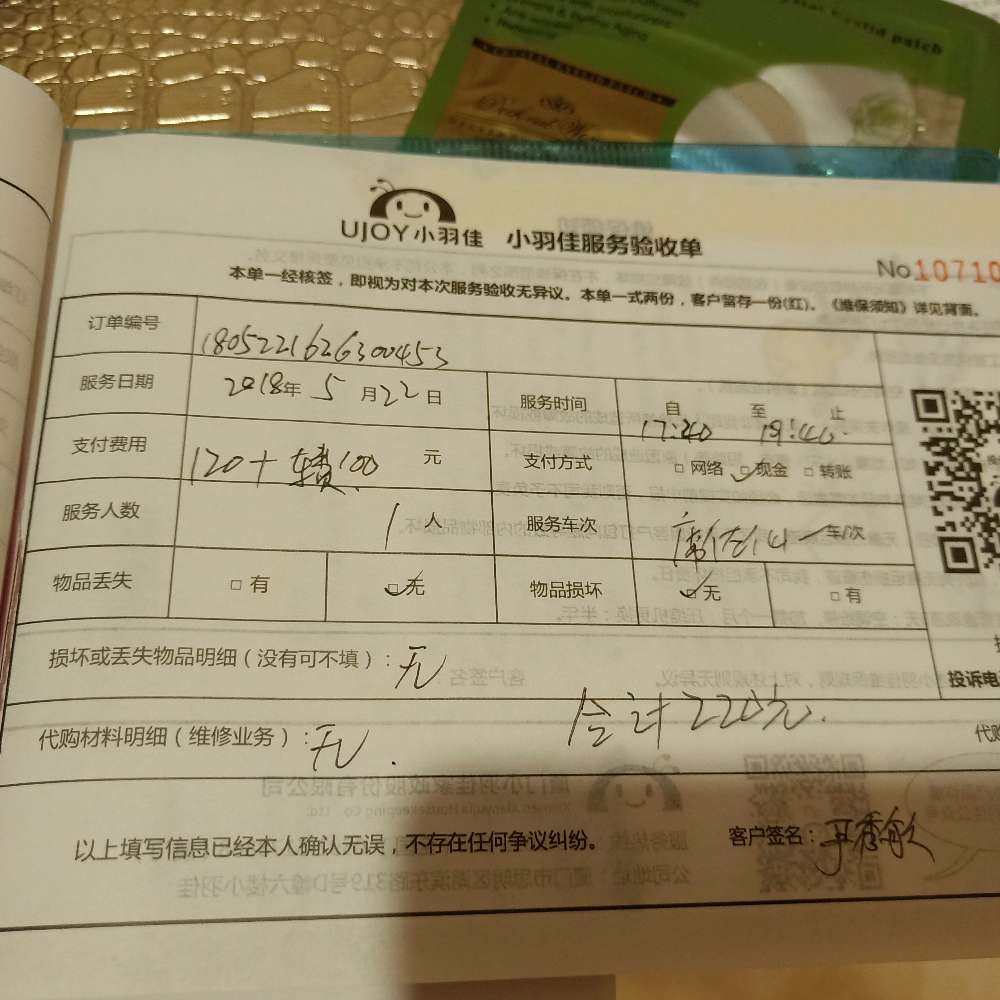 UJOY小羽佳 小羽佳服务验收单
No.10710
本单一经核签，即视为对本次服务验收无异议。本单一式两份，客户留存一份(红)。《维保须知》详见背面。
订单编号 1805221626300453
服务日期 2018年5月22日 服务时间 自 至 止
17:40 19:40
支付费用 120+ 100元 支付方式 □网络 □现金 □转账
服务人数 1人 服务车次 车/次
物品丢失 □有 □无 物品损坏 □无 □有
损坏或丢失物品明细（没有可不填）：无
投诉电
代购材料明细（维修业务）：无 合计220元.
代购
以上填写信息已经本人确认无误，不存在任何争议纠纷。 客户签名：